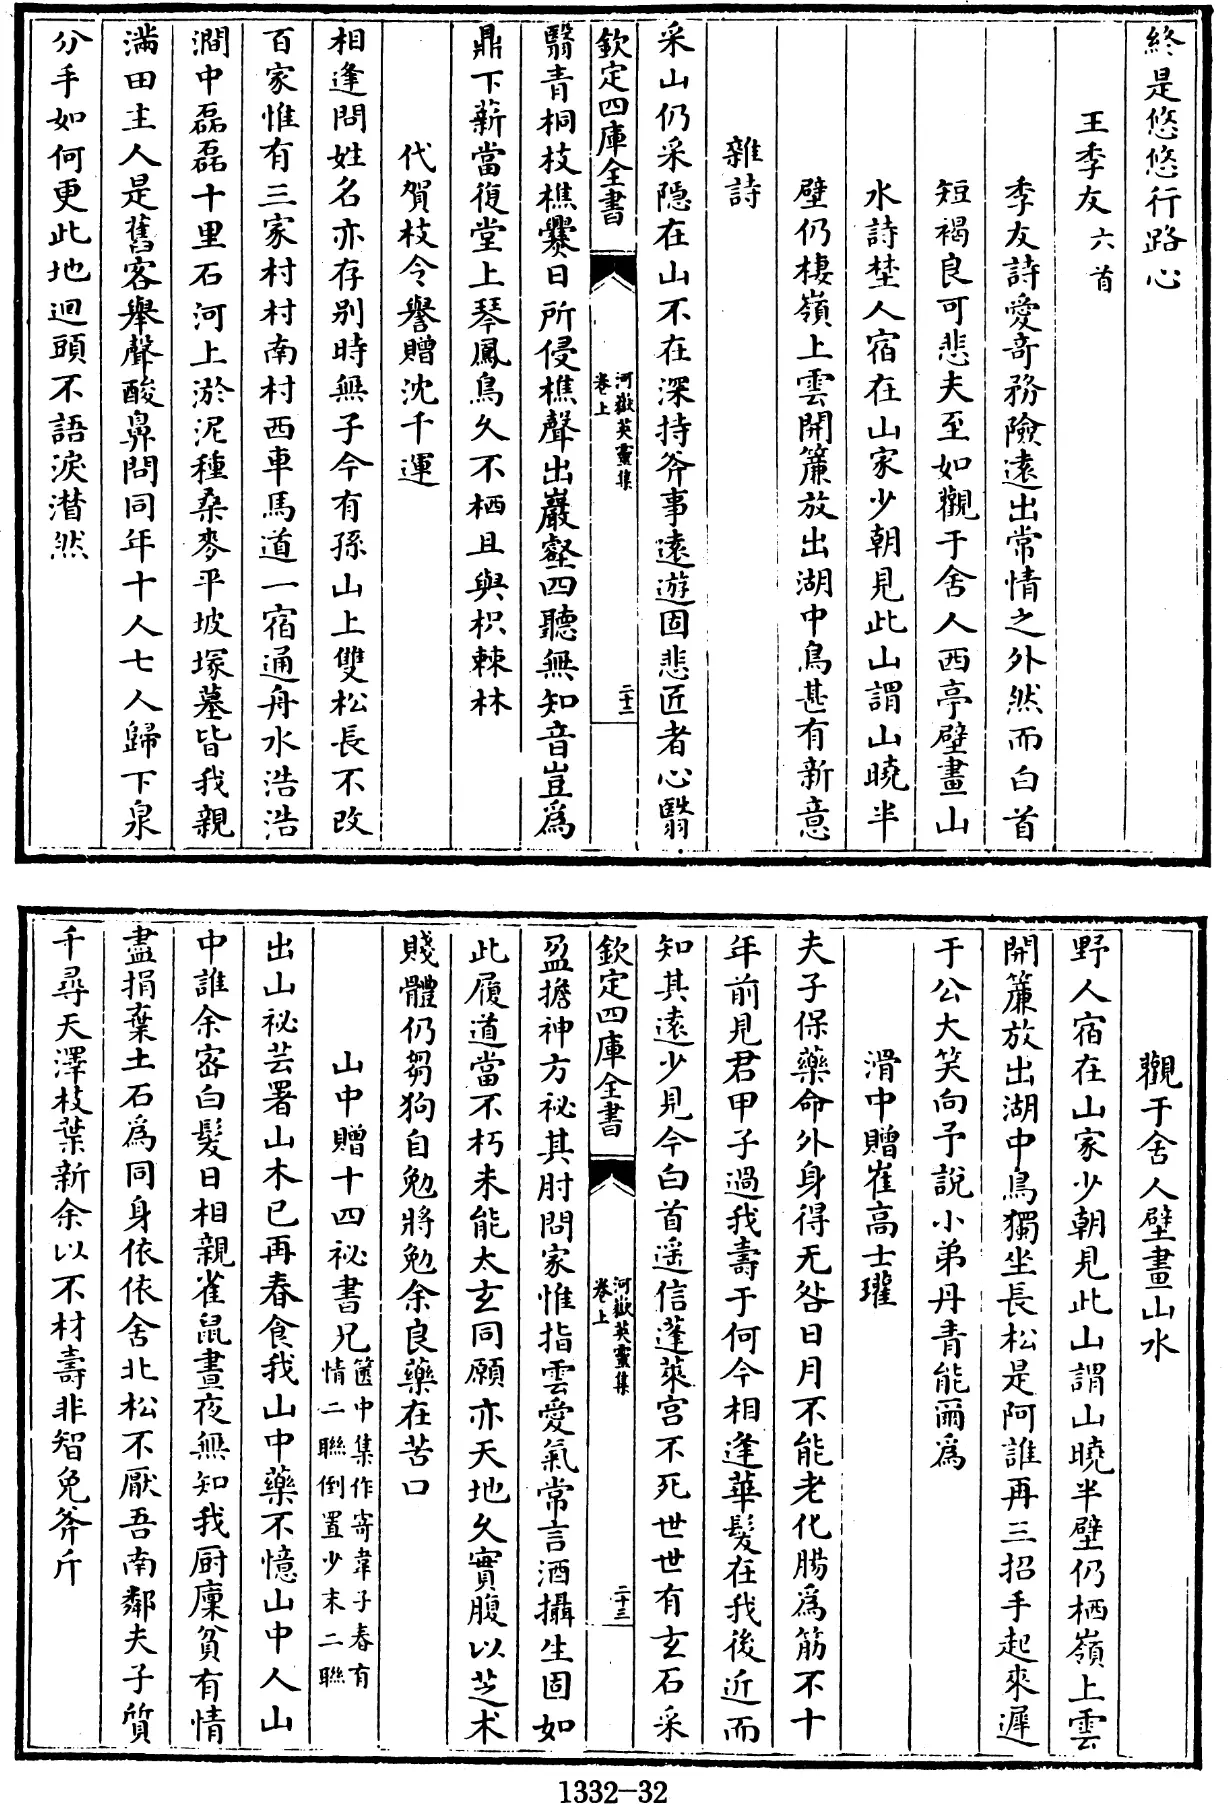 終是悠悠行路心
王季友六首
季友詩愛奇務險遠出常情之外然而白首
短褐良可悲夫至如觀于舍人西亭壁畫山
水詩埜人宿在山家少朝見此山謂山曉半
壁仍棲嶺上雲開簾放出湖中鳥甚有新意
雜詩
采山仍采隱在山不在深持斧事遠遊固悲匠者心翳
欽定四庫全書
河嶽英靈集
卷上
二十二
翳青桐枝樵爨日所侵樵聲出巖壑四聽無知音豈為
鼎下薪當復堂上琴鳳鳥久不栖且與枳棘林
代賀枝令譽贈沈千運
相逢問姓名亦存别時無子今有孫山上雙松長不改
百家惟有三家村村南村西車馬道一宿通舟水浩浩
澗中磊磊十里石河上淤泥種桑麥平坡塚墓皆我親
滿田主人是舊客舉聲酸鼻問同年十人七人歸下泉
分手如何更此地迴頭不語淚潸然
觀于舍人壁畫山水
野人宿在山家少朝見此山謂山曉半壁仍栖嶺上雲
開簾放出湖中鳥獨坐長松是阿誰再三招手起來遲
于公大笑向予說小弟丹青能爾為
滑中贈崔高士瓘
夫子保藥命外身得无咎日月不能老化腸為筋不十
年前見君甲子過我壽于何今相逢華髮在我後近而
知其遠少見今白首遥信蓬萊宫不死世世有玄石采
欽定四庫全書
河嶽英靈集
卷上
二十三
盈擔神方祕其肘問家惟指雲愛氣常言酒攝生固如
此履道當不朽未能太玄同願亦天地久實腹以芝术
賤體仍芻狗自勉將勉余良藥在苦口
山中贈十四祕書兄篋中集作寄韋子春有
情二聯倒置少末二聯
出山祕芸署山木已再春食我山中藥不憶山中人山
中誰余密白髮日相親雀鼠晝夜無知我厨廩貧有情
盡捐棄土石為同身依依舍北松不厭吾南鄰夫子質
千尋天澤枝葉新余以不材壽非智免斧斤
1332-32